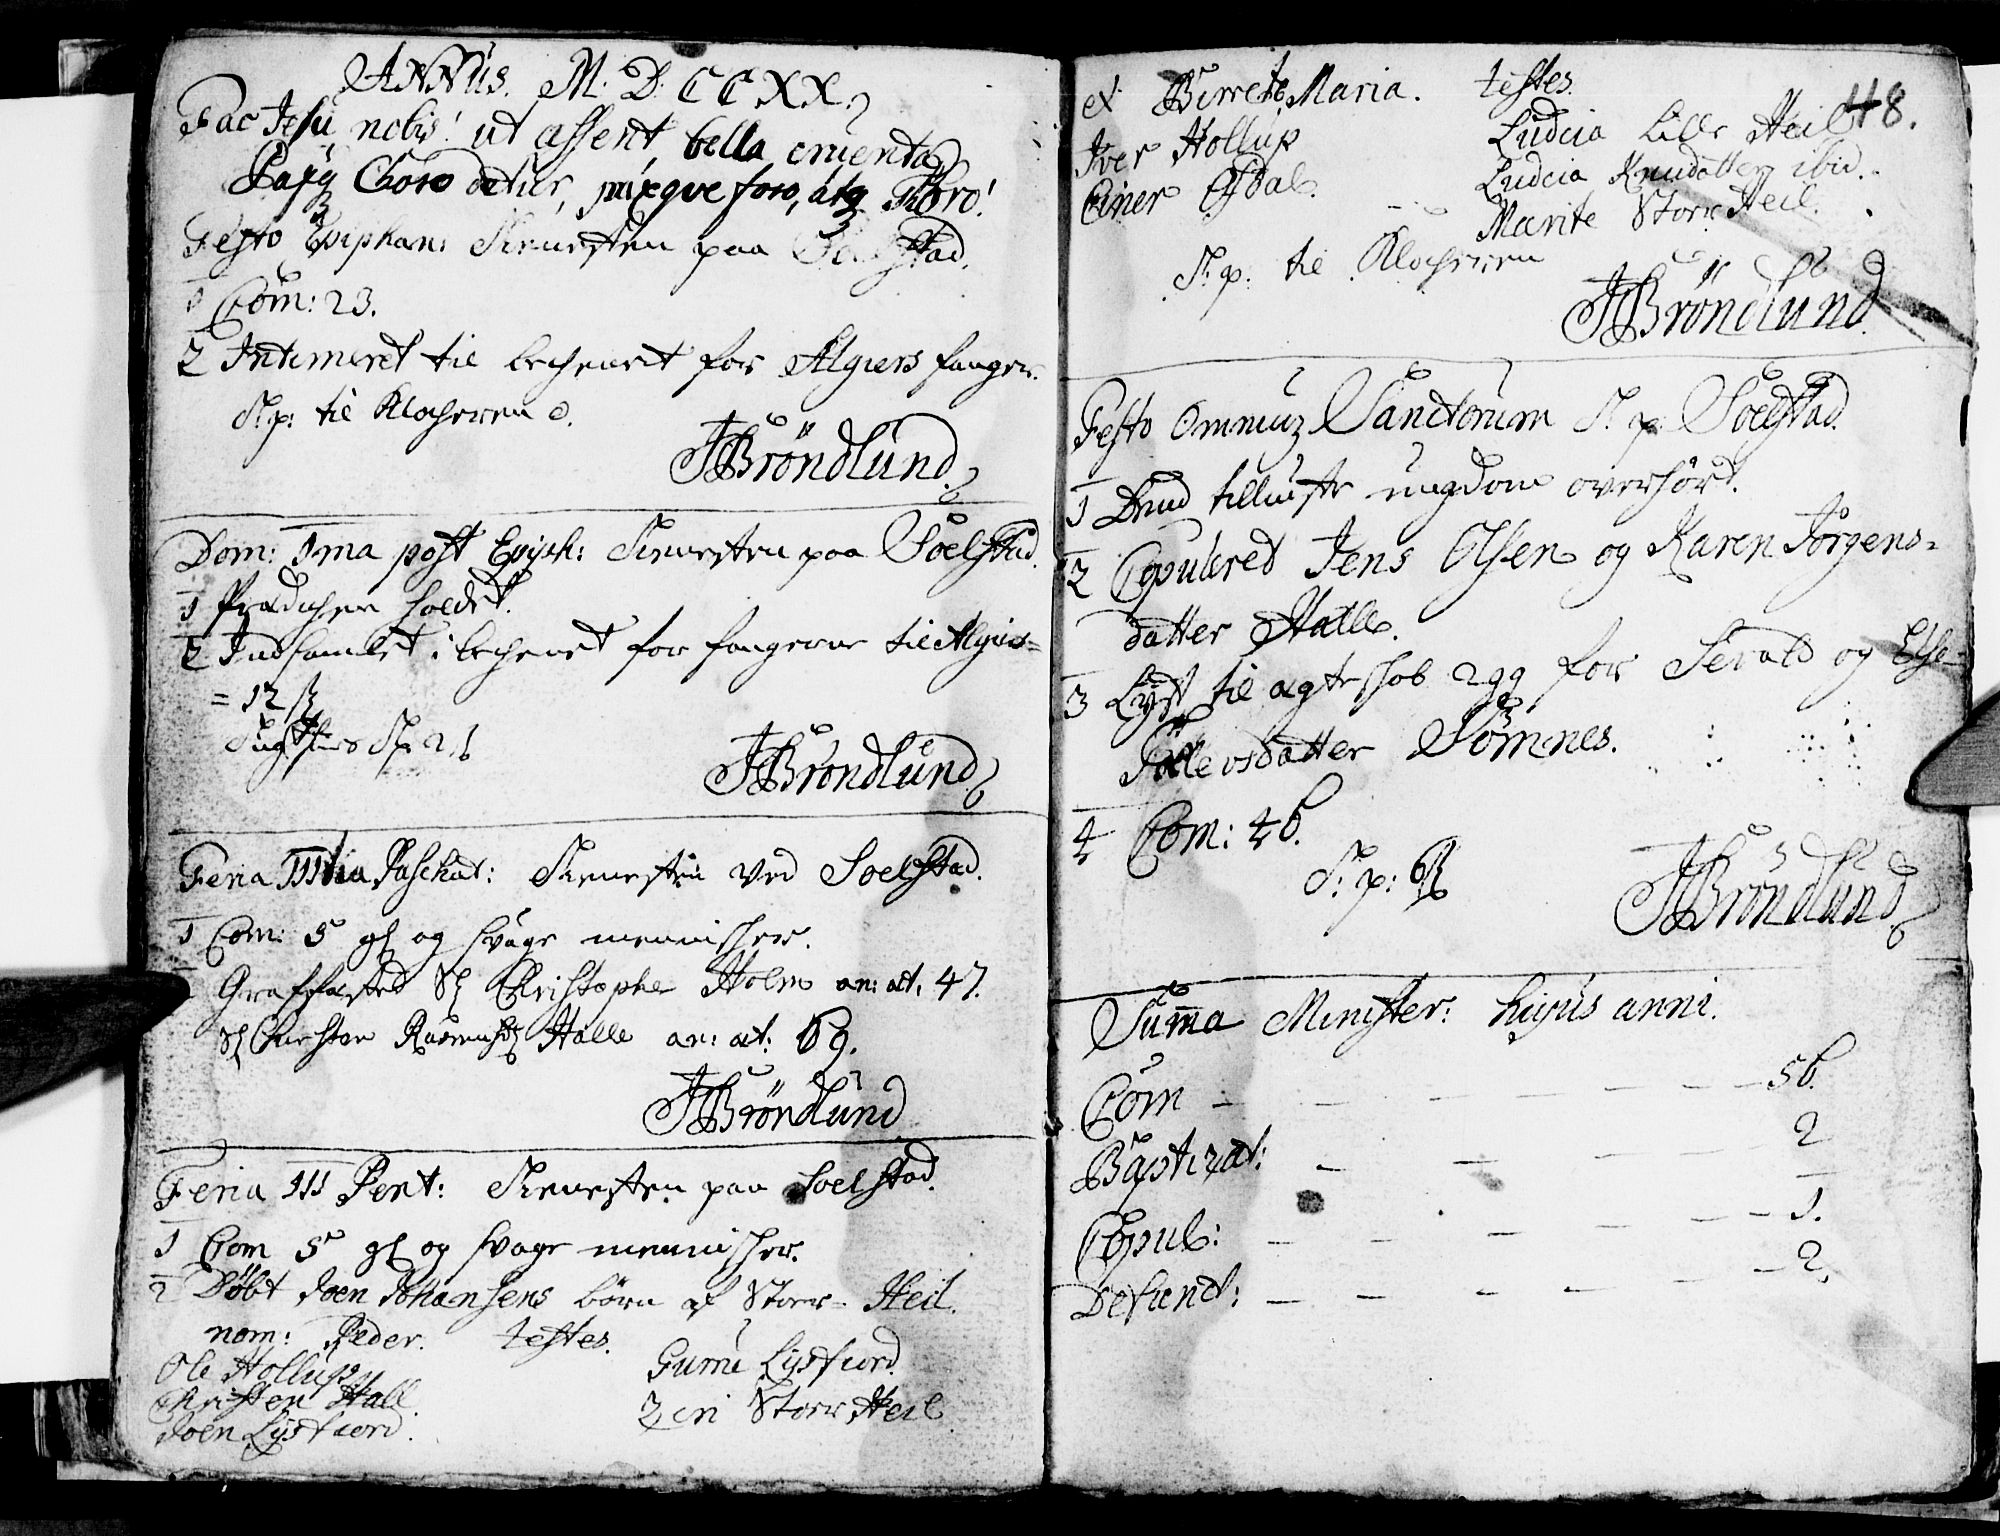 ANNUS. M. D. CCXX.
Fac Jesu, nobis! ut assent, bella, cruenta,
Choro detur, paxqve foro, atq Thoro!
Festo Epiphan: Tienesten paa Soelstad.
1 Com: 23.
2 Intimeret til bechenet for Algiers fanger.
T: p: til Klocheren
JBröndlund
Dom: 1ma post Epiph: Tienesten paa Soelstad.
1 Prædichen holdet.
2 Indsamlet i bechenet for fangerne til Algier=
= 12 ß
T: p. 2
JBröndlund
Feria IIItia Paschat: Tienesten ved Soelstad.
1 Com: 5 gl og svage mennischer.
Graffæsted Sl Christopher Holm an: æt: 47.
Sl Christen Halle an: æt: 69.
JBröndlund
Feria III Pent: Tienesten paa Soelstad.
1 Com 5 gl og svage mennischer.
2 Döbt Joen Johansens börn af Store Heil.
nom: Peder. testes.
Ole Hollup
Christen Hall.
Joen Lystfiord.
Guru Lystfiord.
Store Heil
et Birrete Maria. testes.
48.
Iver Hollup
Einer Opdal
Ludcia Lille Heil
Ludcia Knudsdatter ibid.
Marite Store Heil.
T: p: til Klocheren
JBröndlund
Festo Omnium Sanctorum T. p. Soelstad.
1 Dend tilleviste ungdom overhört.
2 Copuleret Jens Olsen og Karen Jörgens=
datter Halle.
3 Lyst til ægteschab 2 gg for Sivald og Else
Tollevsdatter Sömnes.
4 Com: 46.
T: p: 6 ß
JBröndlund
Summa Minister: hujus anni.
Com - - - - - - - 56.
Baptizat: - - - - 2
Copul: - - - - - - 1.
Defunct: - - - - - - 2.